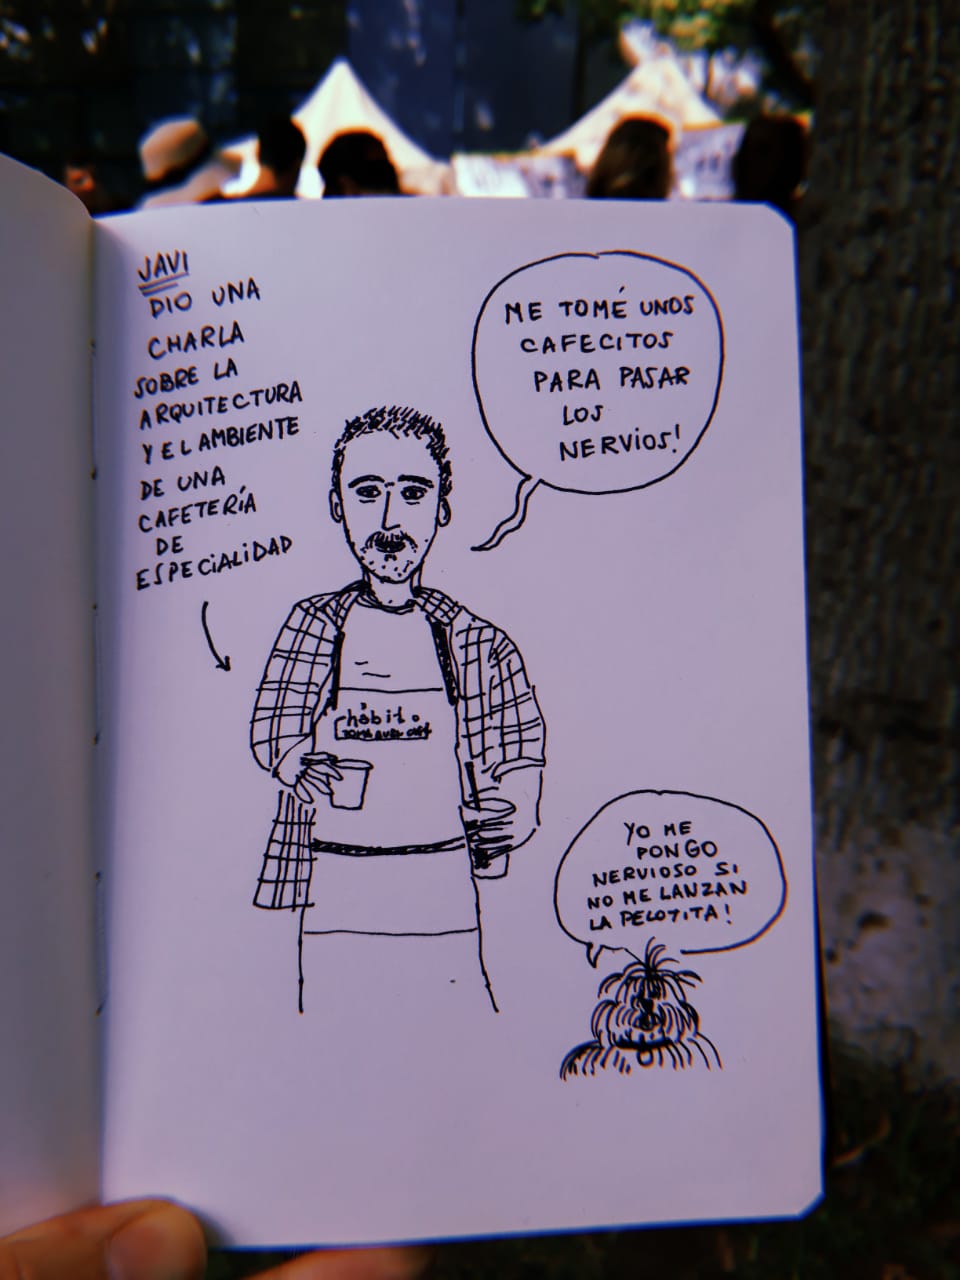 JAVI
DIO UNA
CHARLA
SOBRE LA
ARQUITECTURA
Y EL AMBIENTE
DE UNA
CAFETERÍA
DE
ESPECIALIDAD
ME TOMÉ UNOS
CAFECITOS
PARA PASAR
LOS
NERVIOS!
hábito
YO ME
PONGO
NERVIOSO SI
NO ME LANZAN
LA PELOTITA!